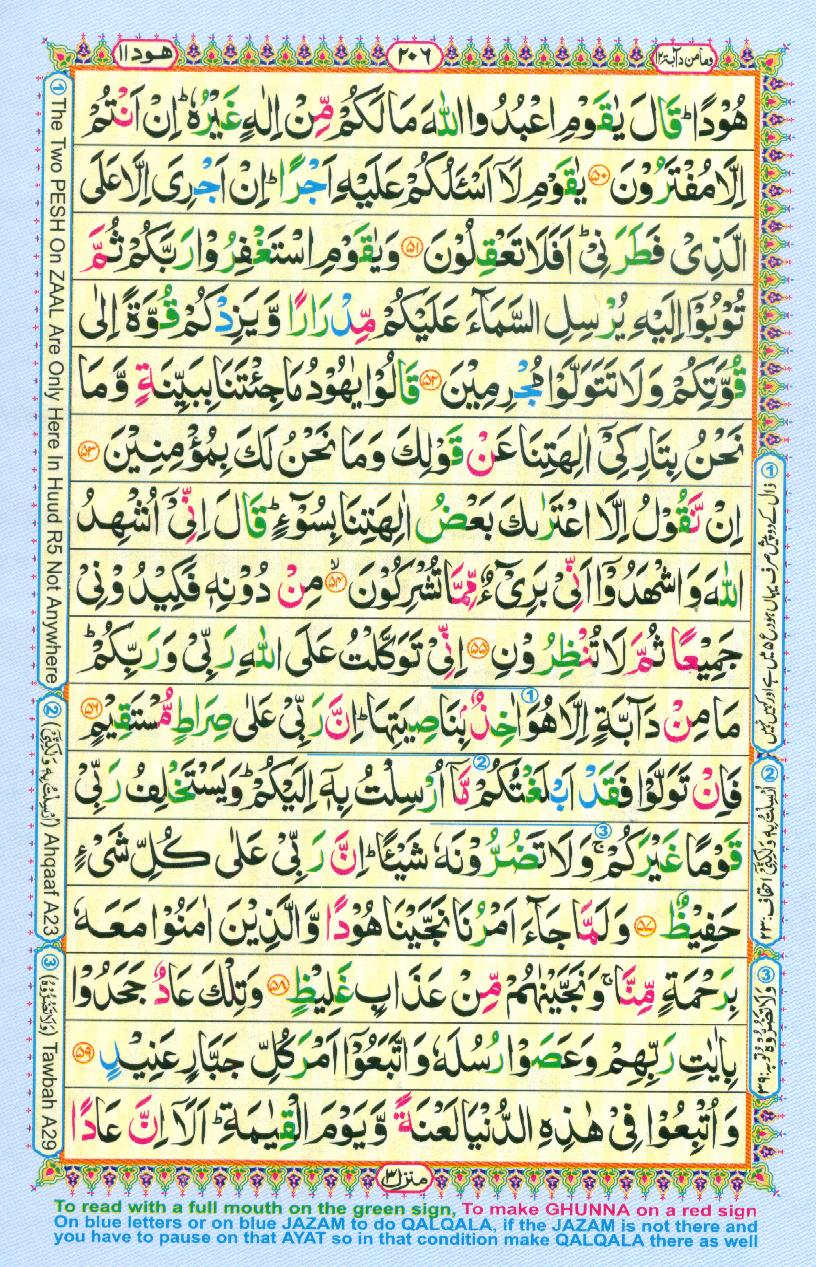 وما من دآبة ۱۲
۲۰۶
هود ۱۱
هُوْدًا ؕ قَالَ يٰقَوْمِ اعْبُدُوا اللّٰهَ مَا لَكُمْ مِّنْ اِلٰهٍ غَيْرُهٗ ؕ اِنْ اَنْتُمْ
اِلَّا مُفْتَرُوْنَ ۵۰ يٰقَوْمِ لَاۤ اَسْـَٔلُكُمْ عَلَيْهِ اَجْرًا ؕ اِنْ اَجْرِىَ اِلَّا عَلَى
الَّذِىْ فَطَرَنِىْ ؕ اَفَلَا تَعْقِلُوْنَ ۵۱ وَيٰقَوْمِ اسْتَغْفِرُوْا رَبَّكُمْ ثُمَّ
تُوْبُوْۤا اِلَيْهِ يُرْسِلِ السَّمَآءَ عَلَيْكُمْ مِّدْرَارًا وَّيَزِدْكُمْ قُوَّةً اِلٰى
قُوَّتِكُمْ وَلَا تَتَوَلَّوْا مُجْرِمِيْنَ ۵۲ قَالُوْا يٰهُوْدُ مَا جِئْتَنَا بِبَيِّنَةٍ وَّمَا
نَحْنُ بِتَارِكِىْۤ اٰلِهَتِنَا عَنْ قَوْلِكَ وَمَا نَحْنُ لَكَ بِمُؤْمِنِيْنَ ۵۳
اِنْ نَّقُوْلُ اِلَّا اعْتَرٰٮكَ بَعْضُ اٰلِهَتِنَا بِسُوْٓءٍ ؕ قَالَ اِنِّىْۤ اُشْهِدُ
اللّٰهَ وَاشْهَدُوْۤا اَنِّىْ بَرِىْٓءٌ مِّمَّا تُشْرِكُوْنَ ۵۴ مِنْ دُوْنِهٖ فَكِيْدُوْنِىْ
جَمِيْعًا ثُمَّ لَا تُنْظِرُوْنِ ۵۵ اِنِّىْ تَوَكَّلْتُ عَلَى اللّٰهِ رَبِّىْ وَرَبِّكُمْ ؕ
مَا مِنْ دَآبَّةٍ اِلَّا هُوَ اٰخِذٌۢ بِنَاصِيَتِهَا ؕ اِنَّ رَبِّىْ عَلٰى صِرَاطٍ مُّسْتَقِيْمٍ ۵۶
فَاِنْ تَوَلَّوْا فَقَدْ اَبْلَغْتُكُمْ مَّاۤ اُرْسِلْتُ بِهٖۤ اِلَيْكُمْ ؕ وَيَسْتَخْلِفُ رَبِّىْ
قَوْمًا غَيْرَكُمْ ۚ وَلَا تَضُرُّوْنَهٗ شَيْـًٔا ؕ اِنَّ رَبِّىْ عَلٰى كُلِّ شَىْءٍ
حَفِيْظٌ ۵۷ وَلَمَّا جَآءَ اَمْرُنَا نَجَّيْنَا هُوْدًا وَّالَّذِيْنَ اٰمَنُوْا مَعَهٗ
بِرَحْمَةٍ مِّنَّا ۚ وَنَجَّيْنٰهُمْ مِّنْ عَذَابٍ غَلِيْظٍ ۵۸ وَتِلْكَ عَادٌ جَحَدُوْا
بِاٰيٰتِ رَبِّهِمْ وَعَصَوْا رُسُلَهٗ وَاتَّبَعُوْۤا اَمْرَ كُلِّ جَبَّارٍ عَنِيْدٍ ۵۹
وَاُتْبِعُوْا فِىْ هٰذِهِ الدُّنْيَا لَعْنَةً وَّيَوْمَ الْقِيٰمَةِ ؕ اَلَاۤ اِنَّ عَادًا
منزل ۳
① ذال کے دو پیش صرف یہاں ہود ع ۵ میں ہے اور کہیں نہیں
② اُرْسِلْتُ بِهٖ وَلٰكِنِّىْ احقاف: ۲۳
③ وَلَا تَضُرُّوْهُ توبہ: ۳۹
① The Two PESH On ZAAL Are Only Here In Huud R5 Not Anywhere
② (اُرْسِلْتُ بِهٖ وَلٰكِنِّىْ) Ahqaaf A23
③ (وَلَا تَضُرُّوْهُ) Tawbah A29
To read with a full mouth on the green sign, To make GHUNNA on a red sign
On blue letters or on blue JAZAM to do QALQALA, if the JAZAM is not there and
you have to pause on that AYAT so in that condition make QALQALA there as well